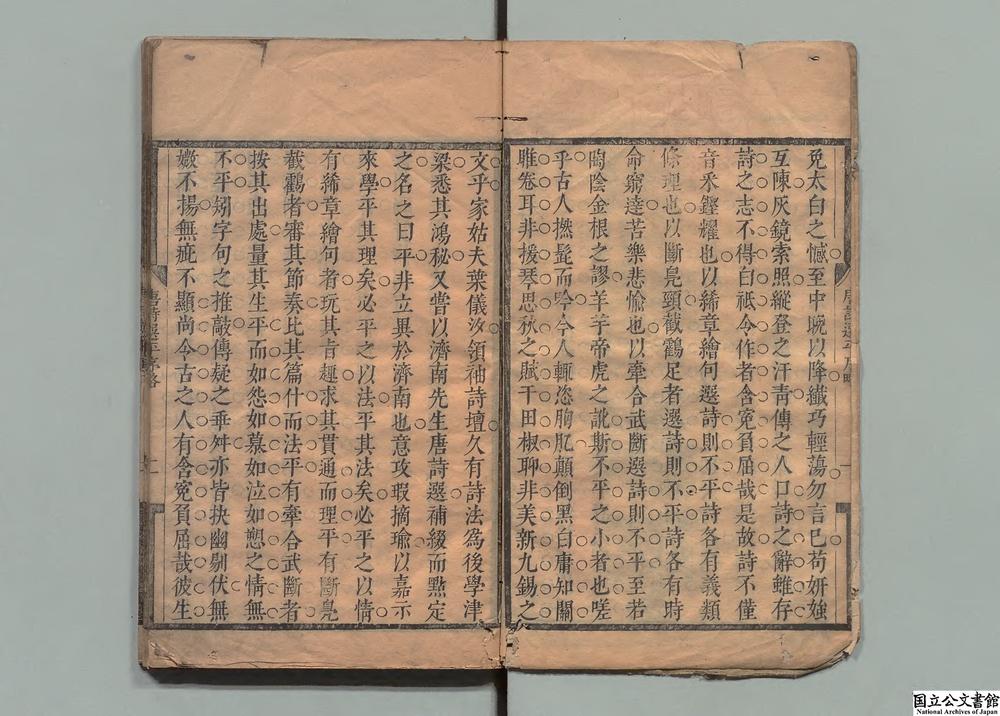 免太白之憾至中晚以降纖巧輕蕩勿言已苟妍媸
互陳灰鏡索照縱登之汗青傳之人口詩之辭雖存
詩之志不得白祇令作者含冤負屈哉是故詩不僅
音釆鏗耀也以絺章繪句選詩則不平詩各有義類
條理也以斷鳧頸截鶴足者選詩則不平詩各有時
命窮達苦樂悲愉也以牽合武斷選詩則不平至若
陶陰金根之謬羊芋帝虎之訛斯不平之小者也嗟
乎古人撚髭而吟今人輒恣胸肊顛倒黑白庸知關
雎卷耳非援琴思秋之賦干田椒聊非美新九錫之
文乎家姑夫葉儀汐領袖詩壇久有詩法為後學津
梁悉其鴻秘又嘗以濟南先生唐詩選補綴而點定
之名之曰平非立異於濟南也意攻瑕摘瑜以嘉示
來學平其理矣必平之以法平其法矣必平之以情
有絺章繪句者玩其旨趣求其貫通而理平有斷鳧
截鶴者審其節奏比其篇什而法平有牽合武斷者
按其出處量其生平而如怨如慕如泣如愬之情無
不平矧字句之推敲傳疑之乖舛亦皆抉幽剔伏無
媺不揚無疵不顯尚今古之人有含冤負屈哉彼生
唐詩選平序略
一
国立公文書館
National Archives of Japan